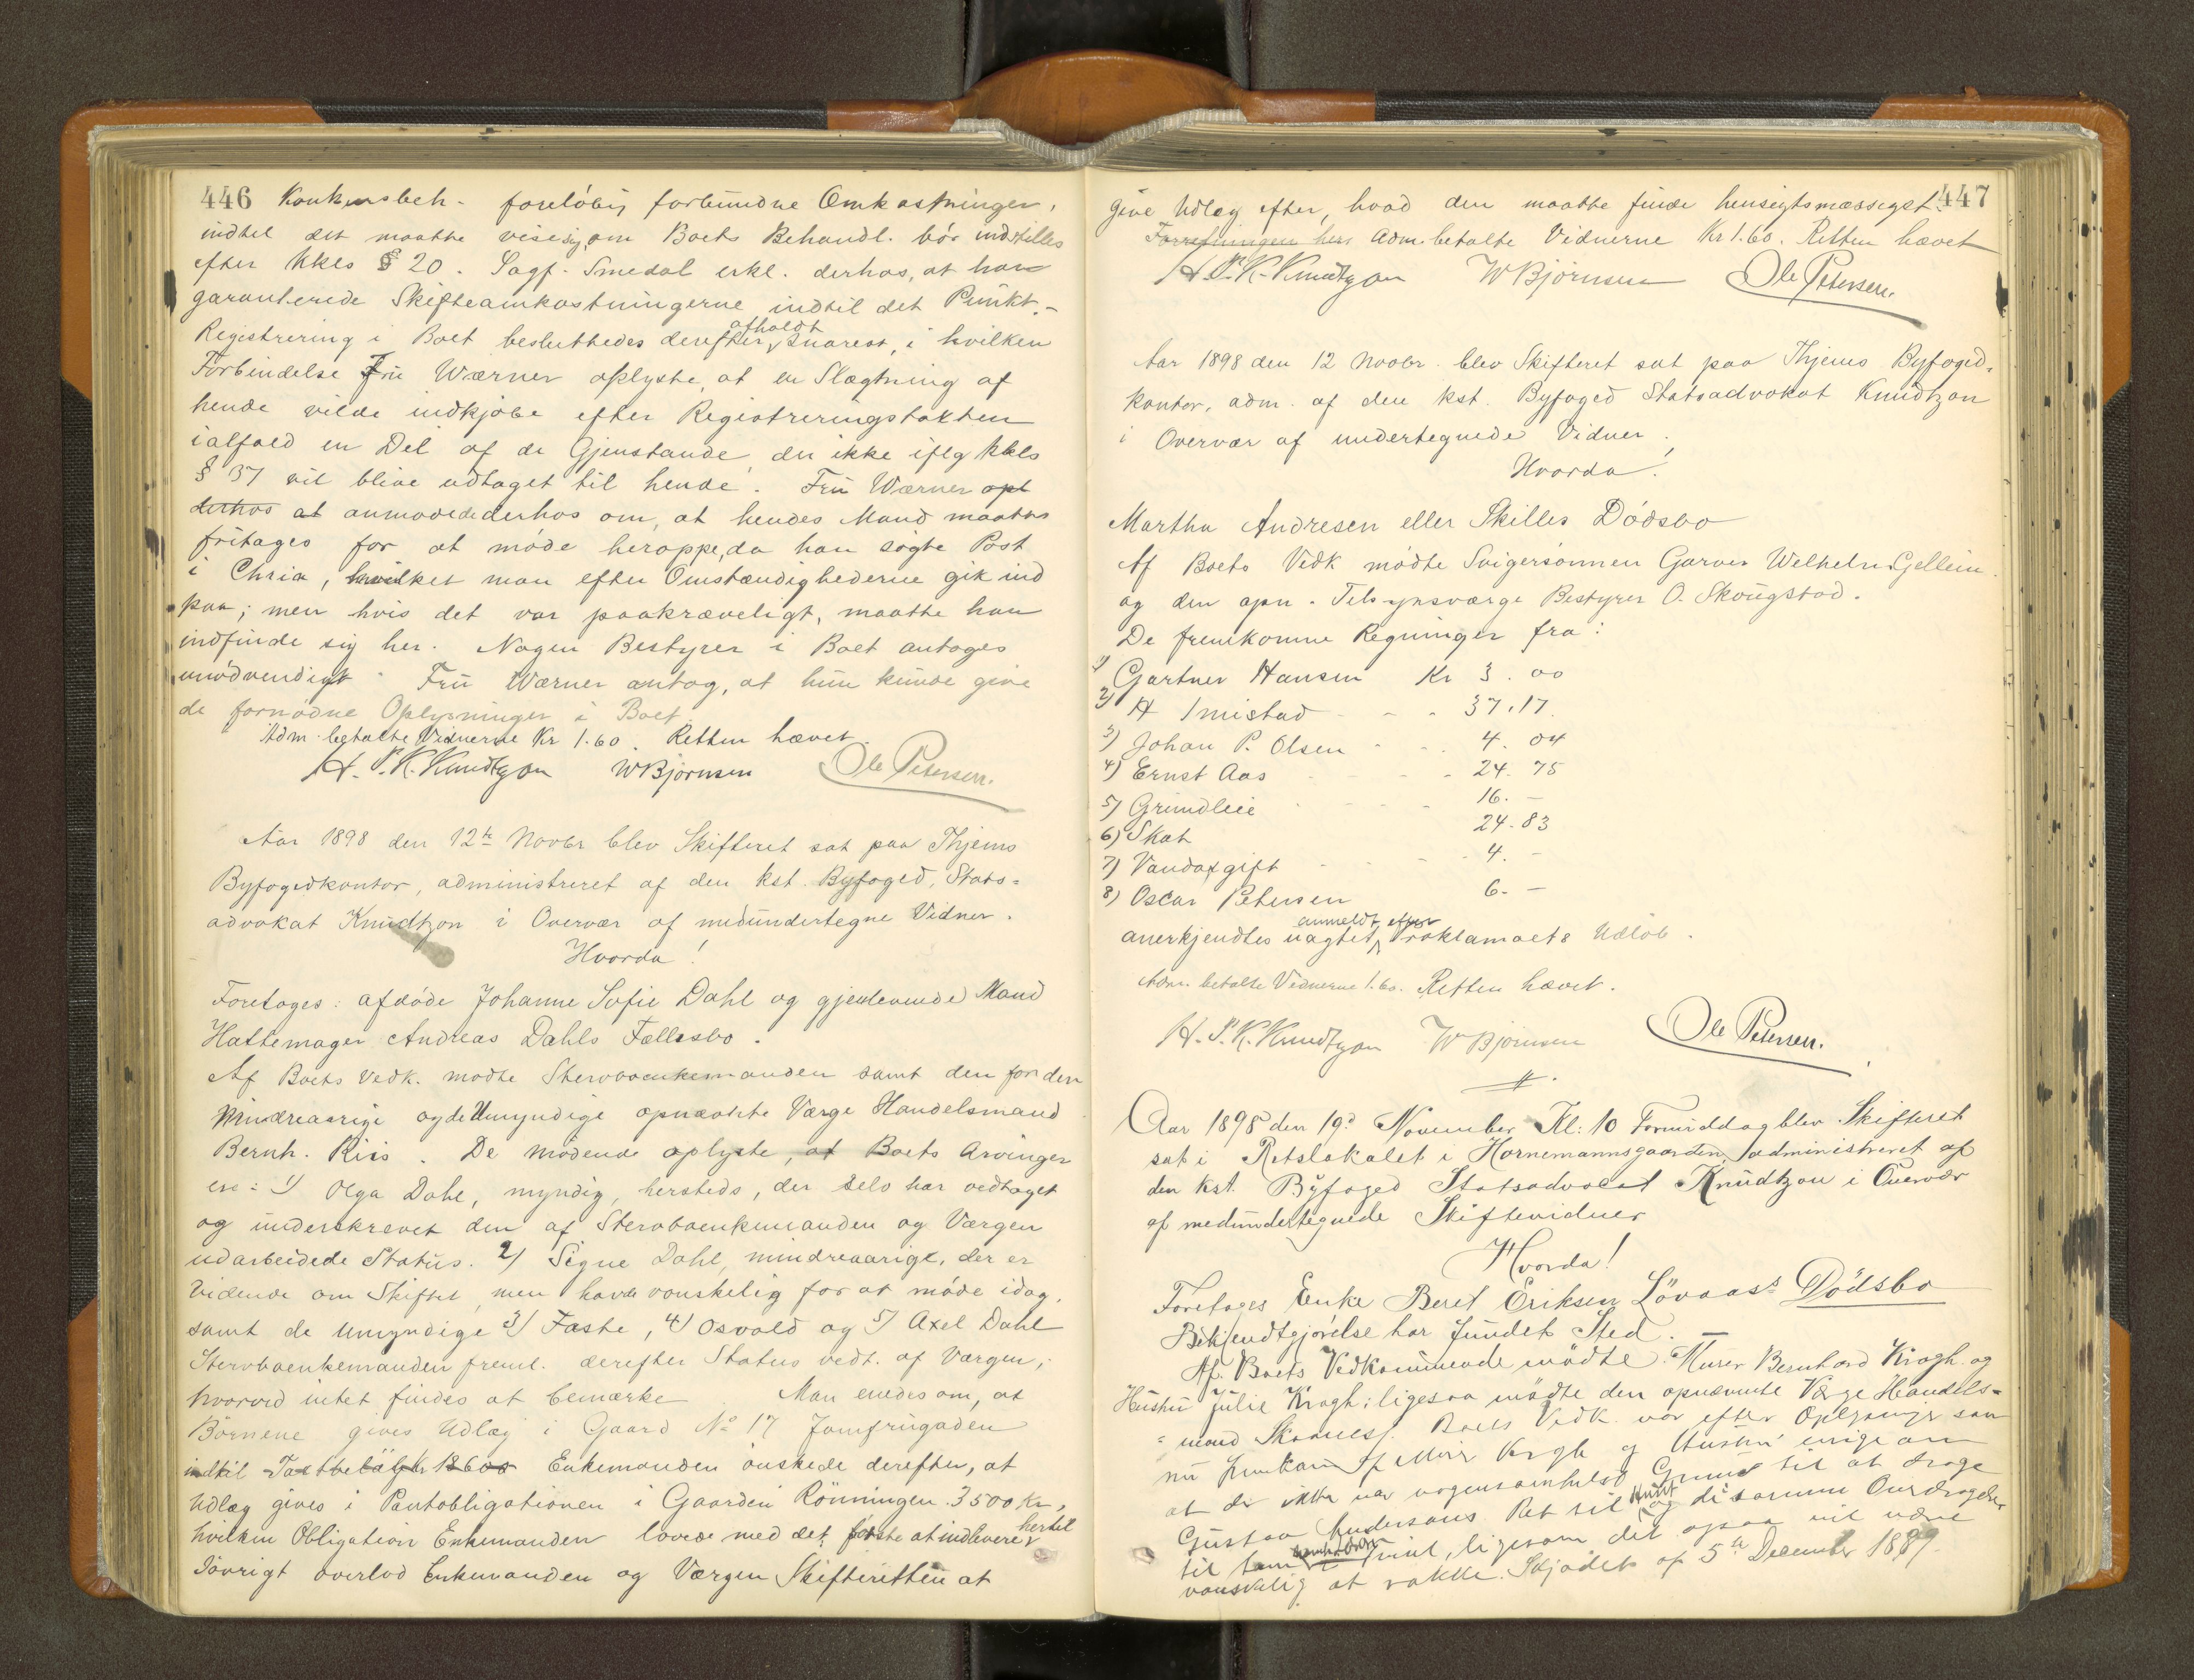 446 Konkursbeh. foreløbig forbundne Omkostninger,
indtil det maatte vise sig, om Boets Behandl. bør indstilles
efter kkls § 20. Sagf. Smedal erkl. derhos, at han
garanterede Skifteomkostningerne indtil det Punkt.-
Registrering i Boet besluttedes derefter afholdt snarest, i hvilken
Forbindelse Fru Wærner oplyste, at en Slægtning af
hende vilde indkjøbe efter Registreringstakten
ialfald en Del af de Gjenstande, der ikke iflg kkls
§ 37 vil blive udtaget til hende. Fru Wærner opl
derhos at anmodede derhos om, at hendes Mand maatte
fritages for at møde heroppe, da han søgte Post
i Chria, hvilket man efter Omstændighederne gik ind
paa; men hvis det var paakræveligt, maatte han
indfinde sig her. Nogen Bestyrer i Boet antoges
unødvendigt. Fru Wærner antog, at hun kunde give
de fornødne Oplysninger i Boet.
Adm. betalte Vidnerne Kr 1.60. Retten hævet
H. P. K. Knudtzon WBjørnsen Ole Petersen.
Aar 1898 den 12te Novbr blev Skifteret sat paa Thjems
Byfogedkontor, administreret af den kst. Byfoged, Stats=
advokat Knudtzon i Overvær af medundertegne Vidner.
Hvorda!
Foretoges: afdøde Johanne Sofie Dahl og gjenlevende Mand
Hattemager Andreas Dahls Fællesbo.
Af Boets Vedk. mødte Stervboenkemanden samt den for den
Mindreaarige og de Umyndige opnævnte Værge Handelsmand
Bernh. Riis. De mødende oplyste, at Boets Arvinger
ere: 1) Olga Dahl, myndig, hersteds, der selv har vedtaget
og underskrevet den af Stervboenkemanden og Værgen
udarbeidede Status. 2) Signe Dahl, mindreaarige, der er
vidende om Skiftet, men havde vanskelig for at møde idag,
samt de umyndige 3) Faste, 4) Osvald og 5) Axel Dahl
Stervboenkemanden freml. derefter Status vedt. af Værgen,
hvorved intet findes at bemærke Man enedes om, at
Børnene gives Udlæg i Gaard No 17 Jomfrugaden
indtil Enkemanden ønskede derefter, at
Udlæg gives i Pantobligationen i Gaarden Rønningen 3500 Kr,
hvilken Obligation Enkemanden lovede med det første at indlevere hertil
Iøvrigt overlod Enkemanden og Værgen Skifteretten at
give Udlæg efter, hvad den maatte finde hensigtsmæssigst. 447
Forretningen her Adm. betalte Vidnerne Kr 1.60. Retten hævet
H. P. K. Knudtzon WBjørnsen Ole Petersen.
Aar 1898 den 12 Novbr. blev Skifteret sat paa Thjems Byfoged-
kontor, adm. af den kst. Byfoged Statsadvokat Knudtzon
i Overvær af undertegnede Vidner.
Hvorda!
Martha Andresen eller Skilles Dødsbo
Af Boets Vedk mødte Svigersønnen Garver Welhelm Gellein
og den opn. Tilsynsværge Bestyrer O. Skougstad.
De fremkomne Regninger fra:
1) Gartner Hansen Kr 3.00
2) H Imistad 37.17
3) Johan P. Olsen 4.04
4) Ernst Aas 24.75
5) Grundleie 16.-
6) Skat 24.83
7) Vandafgift 4.-
8) Oscar Petersen 6.-
anerkjendtes uagtet anmeldt efter Proklamaets Udløb.
Adm. betalte Vidnerne 1.60. Retten hævet.
H. P. K. Knudtzon WBjørnsen Ole Petersen.
Aar 1898 den 19d November Kl: 10 Formiddag blev Skifteret
sat i Retslokalet i Hornemannsgaarden, administreret af
den Kst. Byfoged Statsadvocat Knudtzon i Overvær
af medundertegnede Skiftevidner
Hvorda!
Foretages Enke Beret Eriksen Løvaas's Dødsbo
Bekjendtgjørelse har fundet Sted.
Af Boets Vedkommende mødte Murer Bernhard Krogh og
Hustru Julie Krogh; ligesaa mødte den opnævnte Værge Handels=
=mand Boets Vedk. var efter Oplysninger som
nu fremkom af Murer Krogh og Hustru enige om
at der ikke var nogensomhelst Grund til at drage
Gustav Andersons Ret til og disamme Overdragelse
til ham ligesom det ogsaa vil være
vanskelig at rokke Skjødet af 5te December 1889.